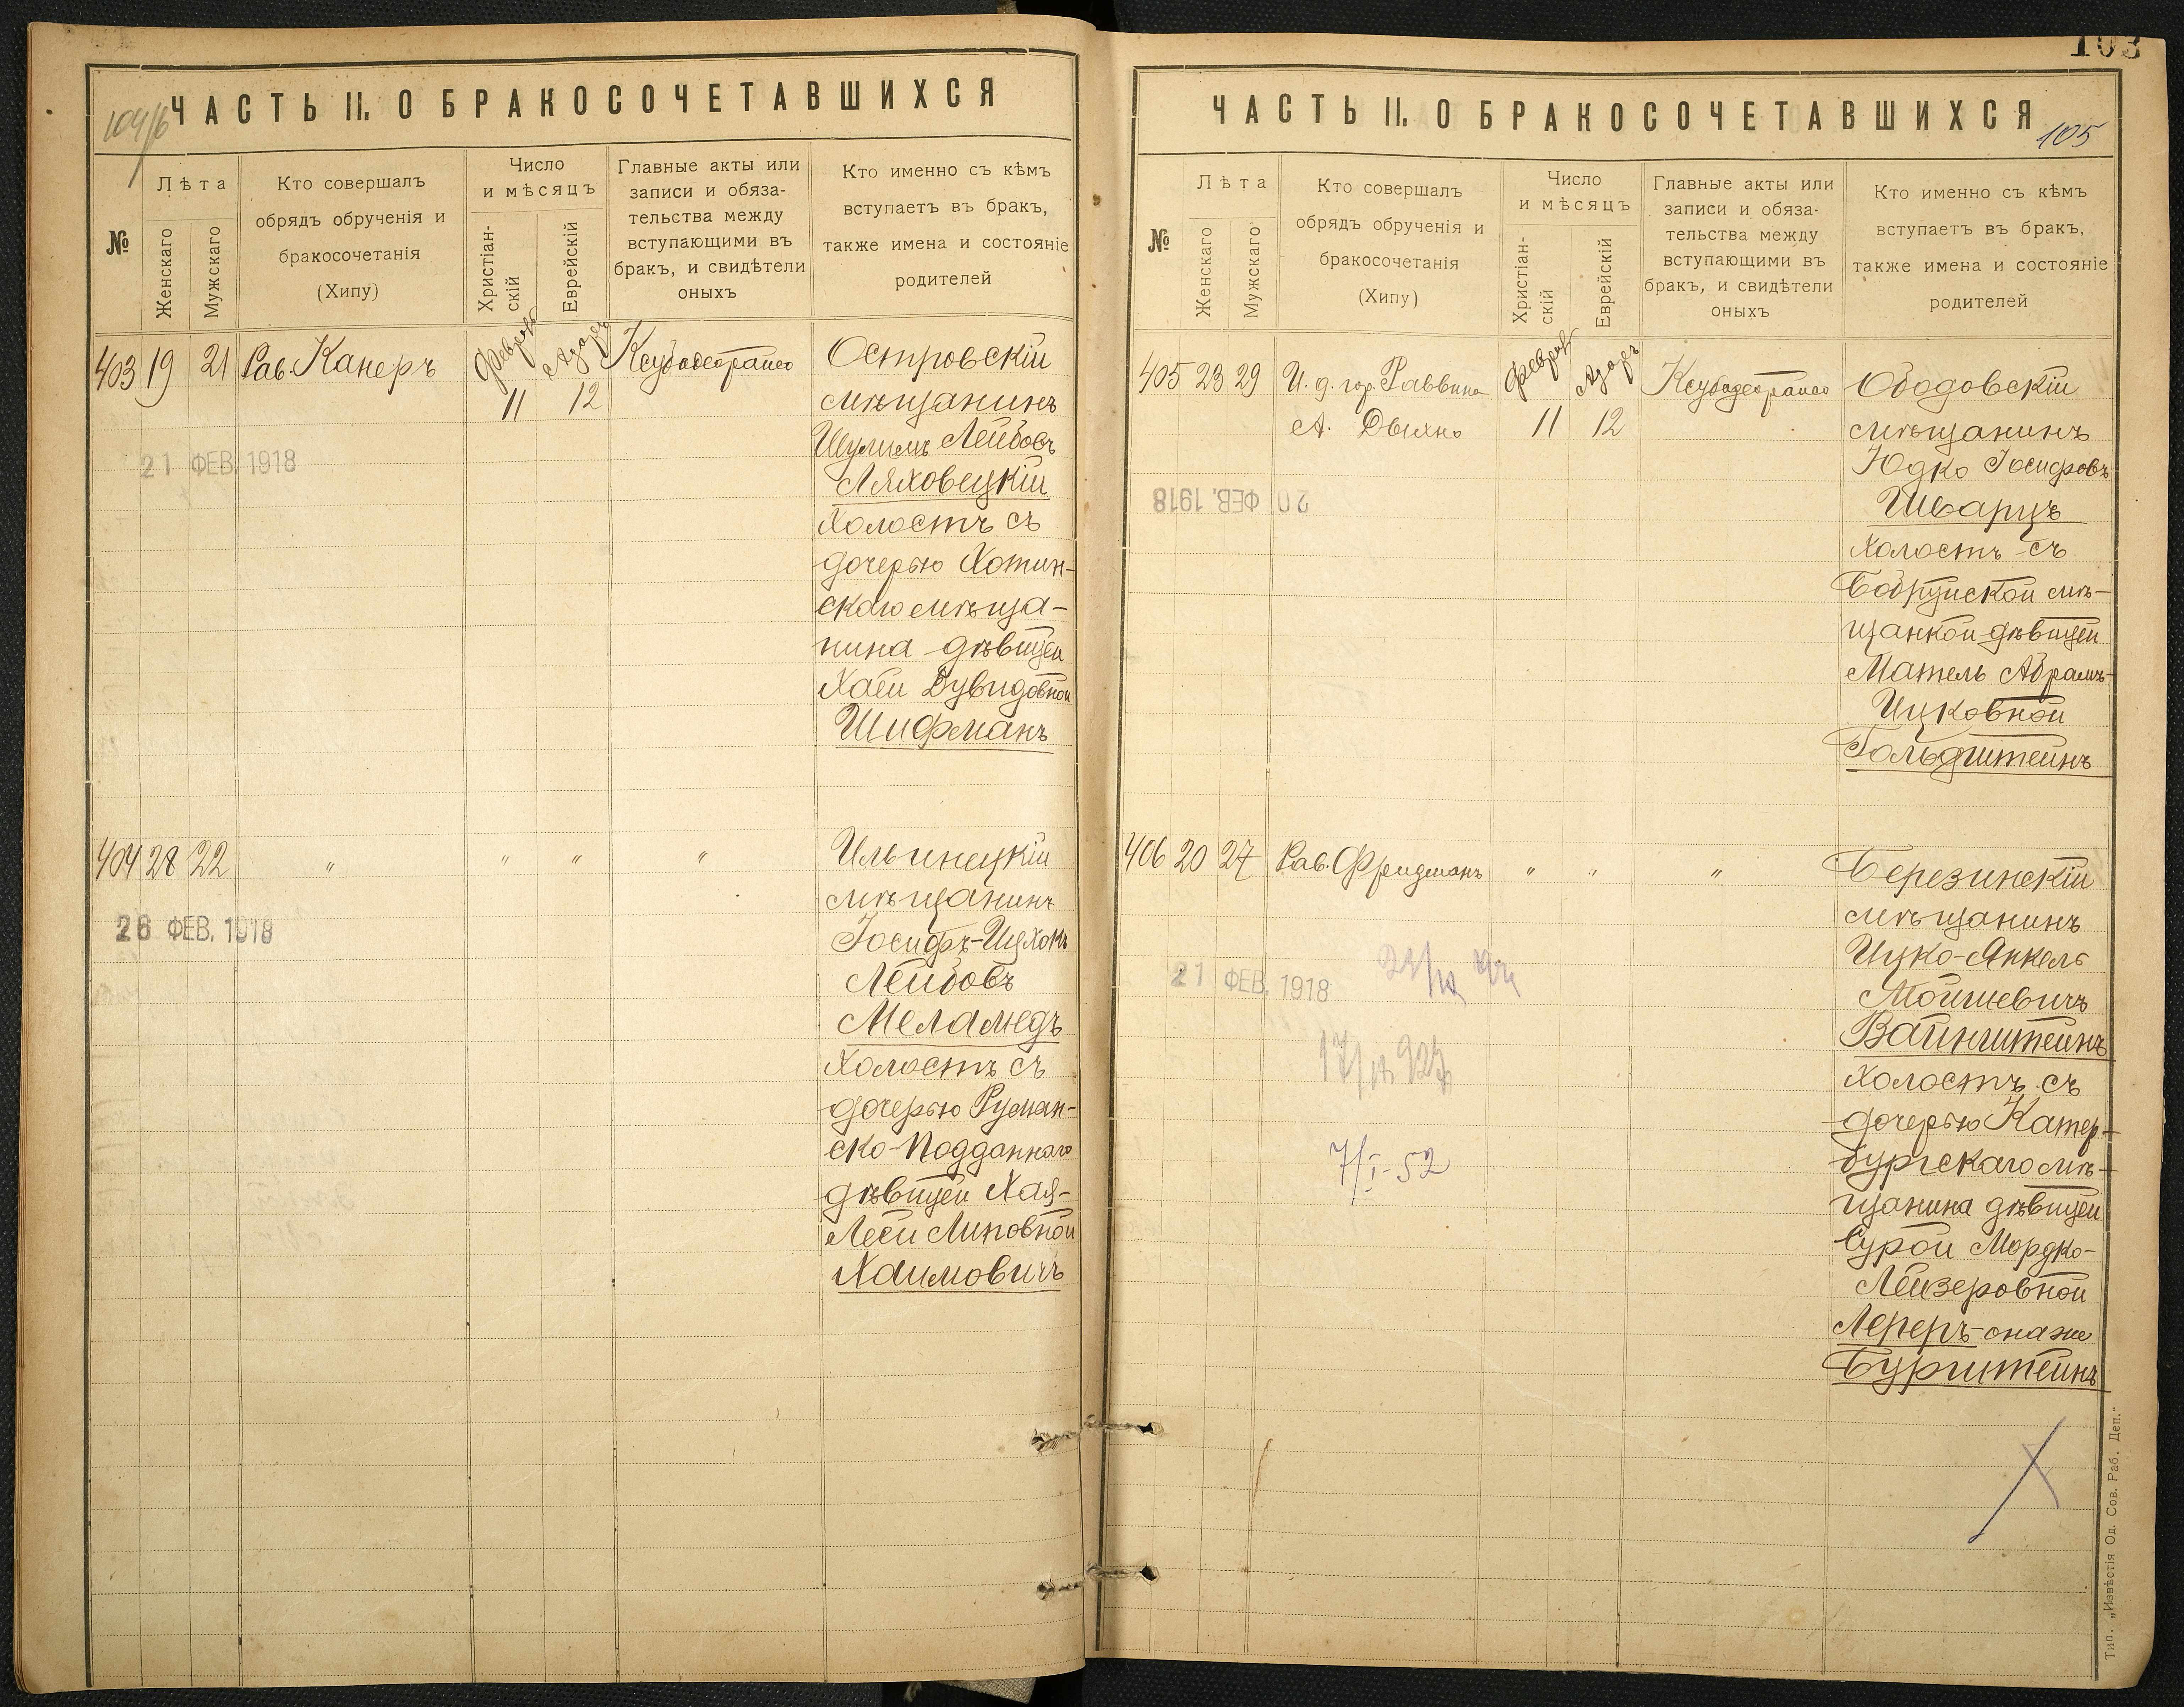 ЧАСТЬ II. О БРАКОСОЧЕТАВШИХСЯ
№
Лѣта
Женскаго
Мужскаго
Кто совершалъ
обрядъ обрученія и
бракосочетанія
(Хипу)
Число
и мѣсяцъ
Христіан-
скій
Еврейскій
Главные акты или
записи и обяза-
тельства между
вступающими въ
бракъ, и свидѣтели
оныхъ
Кто именно съ кѣмъ
вступаетъ въ бракъ,
также имена и состояніе
родителей
403 19 21 Рав. Канеръ
11 12
Островскій
мѣщанинъ
Шулимъ Лейбовъ
Ляховецкій
холостъ съ
дочерью Хотин-
скаго мѣща-
нина дѣвицей
Хаей Дувидовной
Шифманъ
21 ФЕВ. 1918
404 28 22 " " " "
Ильинецкій
мѣщанинъ
Іосифъ-Ицхокъ
Лейбовъ
Меламедъ
холостъ съ
дочерью Румын-
ско-подданнаго
дѣвицей Хая-
Леей Липовной
Хаимовичъ
26 ФЕВ. 1918
103
ЧАСТЬ II. О БРАКОСОЧЕТАВШИХСЯ
105
№
Лѣта
Женскаго
Мужскаго
Кто совершалъ
обрядъ обрученія и
бракосочетанія
(Хипу)
Число
и мѣсяцъ
Христіан-
скій
Еврейскій
Главные акты или
записи и обяза-
тельства между
вступающими въ
бракъ, и свидѣтели
оныхъ
Кто именно съ кѣмъ
вступаетъ въ бракъ,
также имена и состояніе
родителей
405 23 29 И. д. гор. Раввина
11 12
Ободовскій
мѣщанинъ
Юдко Іосифовъ
Шварцъ
холостъ съ
Бобруйской мѣ-
щанкой дѣвицей
Матель Абрамъ-
Ицковной
Гольдштейнъ
20 ФЕВ. 1918
406 20 27 Рав. Фридманъ " " "
Березинскій
мѣщанинъ
Ицко-Янкель
Мошиевичъ
Вайнштейнъ
холостъ съ
дочерью Катер-
бургскаго мѣ-
щанина дѣвицей
Сурой Мордко-
Лейзеровной
Лереръ-она же
Бурштейнъ
21 ФЕВ. 1918
7/I-52
Тип. „Извѣстія Од. Сов. Раб. Деп."